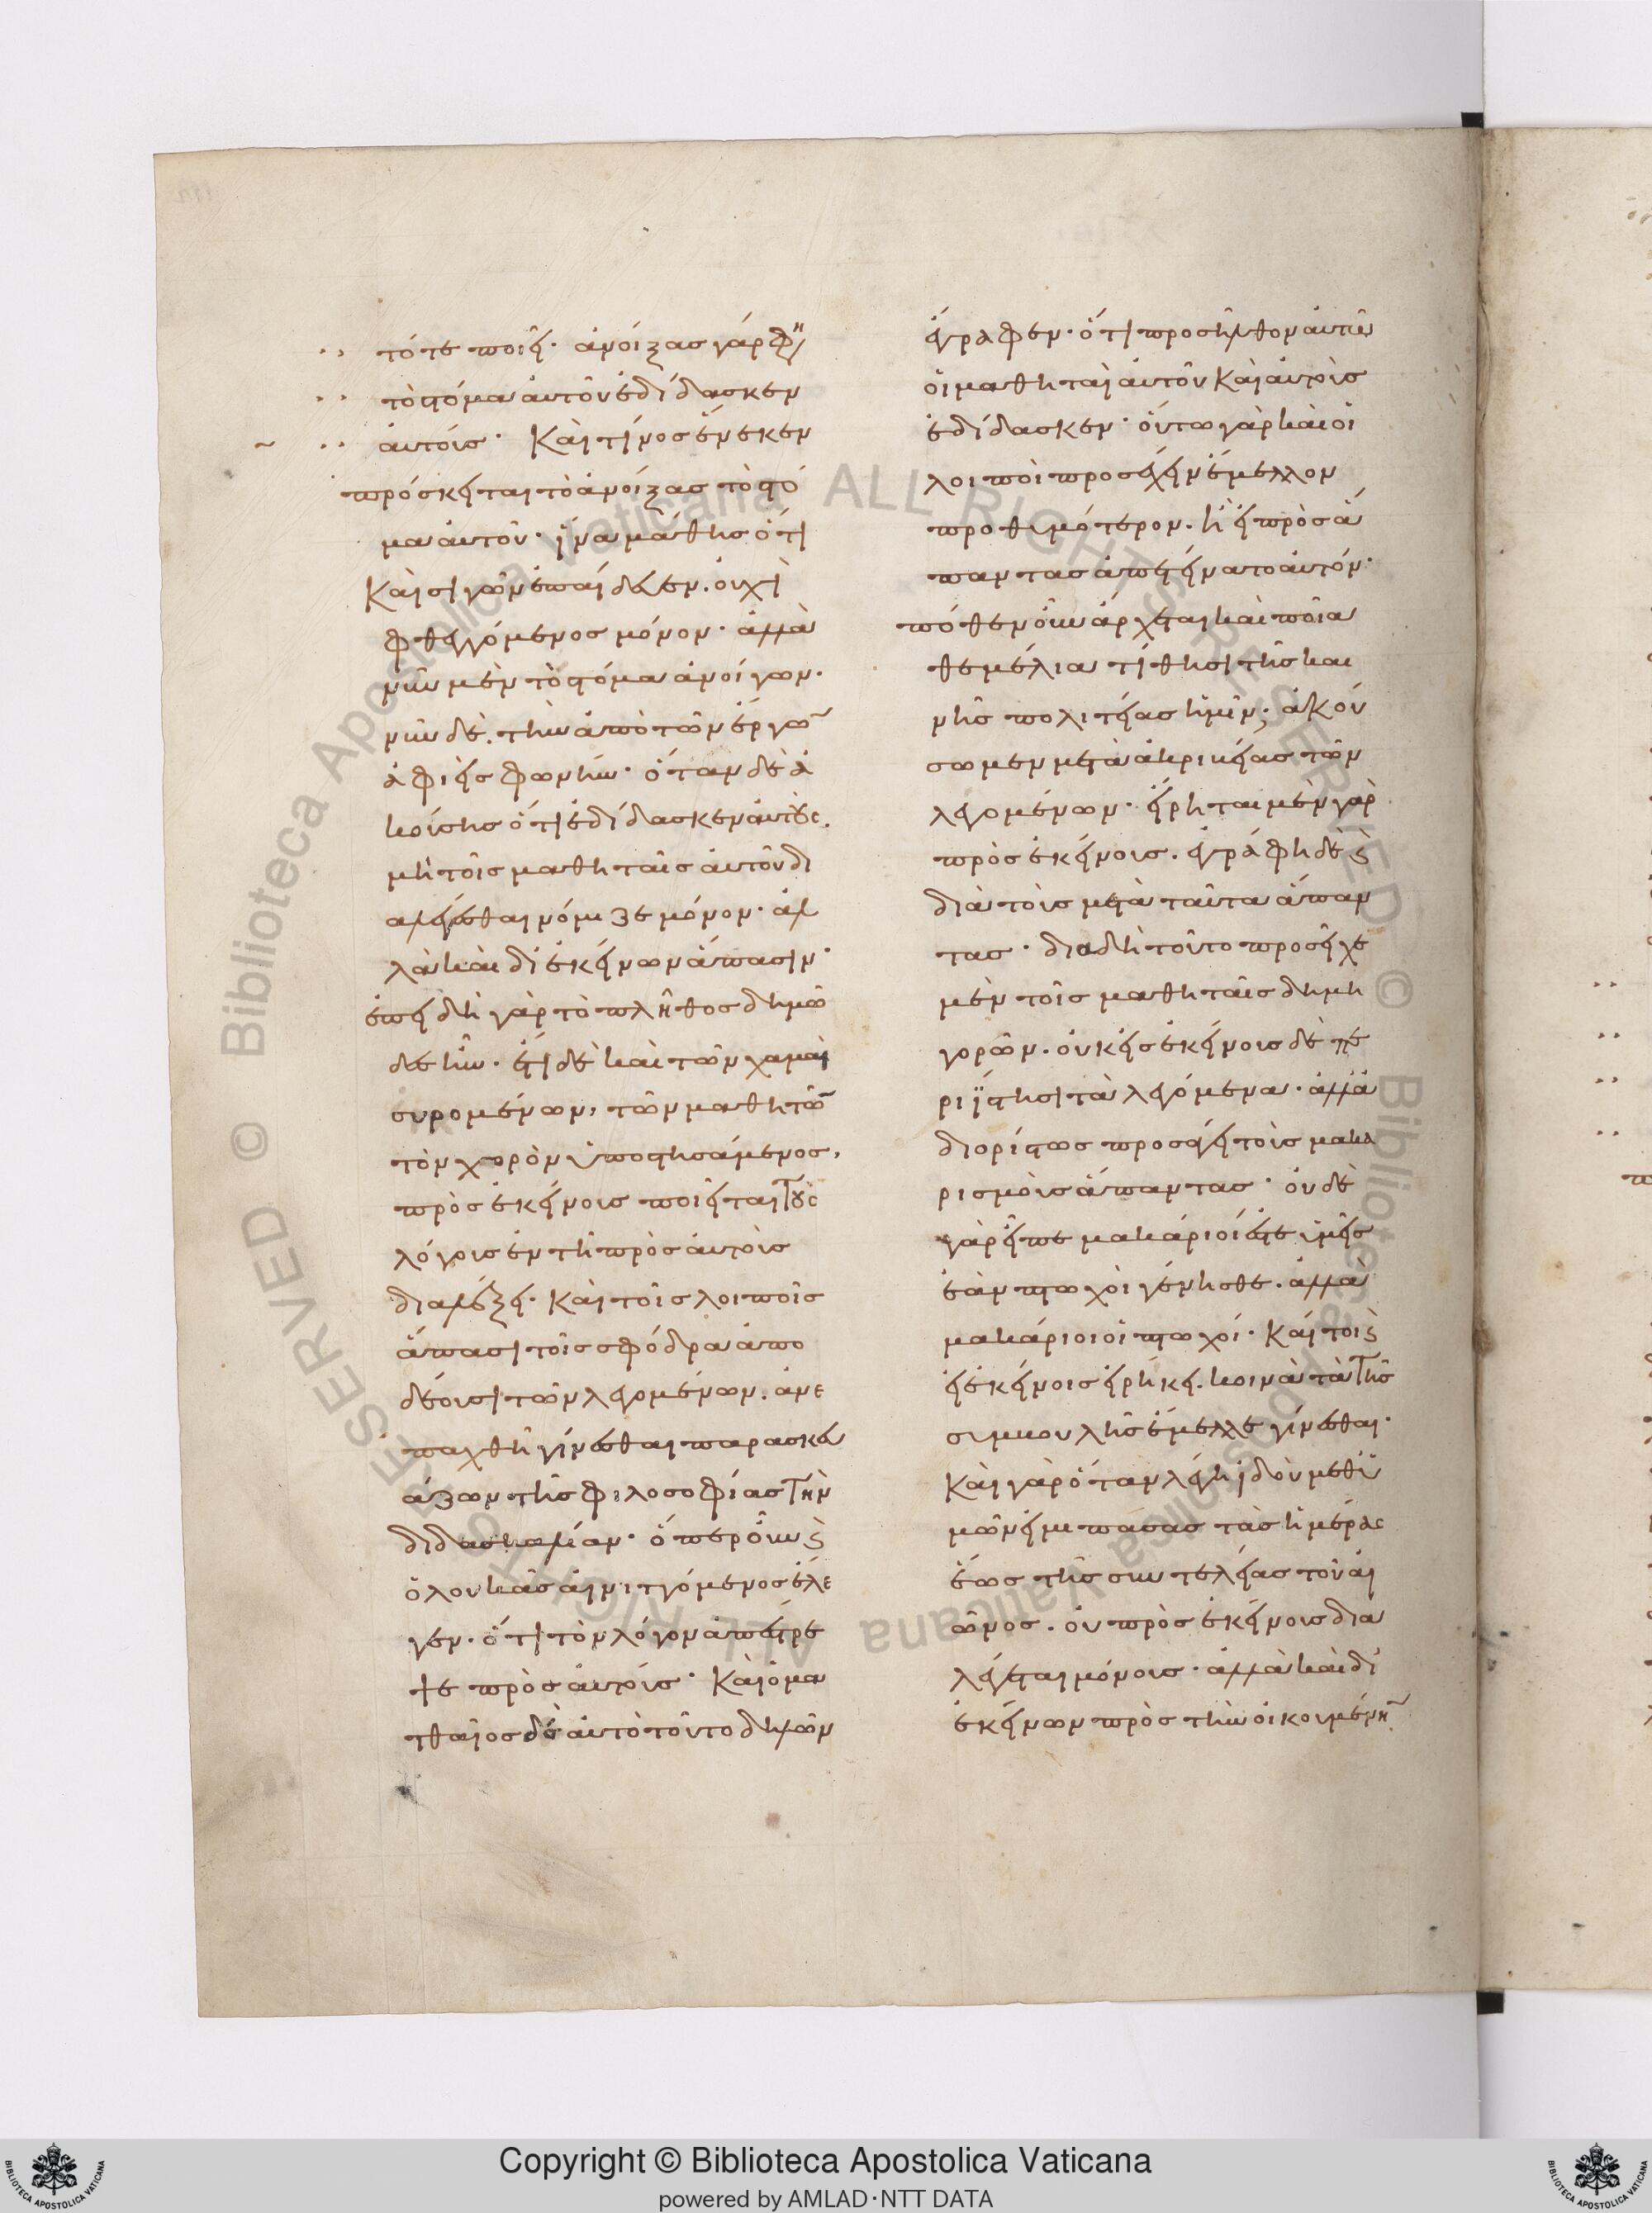 τότε ποιεῖ· ἀνοίξας γάρ φη
τὸ στόμα αὐτοῦ ἐδίδασκεν
αὐτούς· Καὶ τίνος ἕνεκεν
πρόσκειται τὸ ἀνοίξας τὸ στό
μα αὐτοῦ· ἵνα μάθῃς ὅτι
Καὶ σιγῶν ἐπαίδευεν. οὐχὶ
φθεγγόμενος μόνον· ἀλλὰ
νῦν μὲν τὸ στόμα ἀνοίγων·
νῦν δὲ. τὴν ἀπὸ τῶν ἔργῶ
ἀφιεὶς φωνήν· ὅταν δὲ ἀ
κούσῃς ὅτι ἐδίδασκεν αὐτούς.
μὴ τοῖς μαθηταῖς αὐτοῦ δι
αλέγεσθαι νόμιζε μόνον· ἀλ
λὰ καὶ δι ἐκείνων ἅπασιν·
ἐπειδὴ γὰρ τὸ πλῆθος δημῶ
δες ἦν· ἔτι δὲ καὶ τῶν χαμαὶ
συρομένων, τῶν μαθητῶ͂
τὸν χορὸν ὑποστησάμενος,
πρὸς ἐκείνους ποιεῖται τοὺς
λόγους ἐν τῇ πρὸς αὐτοὺς
διαλέξει· Καὶ τοῖς λοιποῖς
ἅπασι τοῖς σφόδρα ἀπο
δέουσι τῶν λεγομένων. ἀνε
παχθῆ γίνεσθαι παρασκευ
άζων τῆς φιλοσοφίας τὴν
διδασκαλίαν· ὅπερ οὖν ϛ
ὁ λουκᾶς αἰνιττόμενος ἔλε
γεν· ὅτι τὸν λόγον ἀπέστρε
ψε πρὸς αὐτούς· Καὶ ὁ μα
τθαῖος δὲ αὐτὸ τοῦτο δηλῶν
ἔγραφεν· ὅτι προσῆλθον αὐτῶ
οἱ μαθηταὶ αὐτοῦ Καὶ αὐτοὺς
ἐδίδασκεν· οὕτω γὰρ καὶ οἱ
λοιποὶ προσέχειν ἔμελλον
προθυμότερον. ἢ εἰ πρὸς ἅ
παντας ἀπετείνατο αὐτόν·
πόθεν οὖν ἄρχεται καὶ ποῖα
θεμέλια τίθησι τῆς και
νῆς πολιτείας ἡμῖν; ἀκού
σωμεν μετὰ ἀκριβείας τῶν
λεγομένων· εἴρηται μὲν γὰρ
πρὸς ἐκείνους. ἐγράφη δὲ ϛ
διὰ τοὺς μετὰ ταῦτα ἅπαν
τας· διὰ δὴ τοῦτο προσεῖχε
μὲν τοῖς μαθηταῖς δημη
γορῶν. οὐκ εἰς ἐκείνους δὲ πε
ριΐστησι τὰ λεγόμενα· ἀλλὰ
διορίστως προσάγει τοὺς μακα
ρισμοὺς ἅπαντας· οὐδὲ
γὰρ εἶπε μακάριοί ἐστε ὑμεῖς
ἐὰν πτωχοὶ γένησθε. ἀλλὰ
μακάριοι οἱ πτωχοί· Καίτοι ϛ
εἰ ἐκείνοις εἰρήκει. κοινὰ τὰ τῆς
συμβουλῆς ἔμελλε γίνεσθαι·
Καὶ γὰρ ὅταν λέγῃ ἰδοὺ μεθ ὑ
μῶν εἰμι πάσας τὰς ἡμέρας
ἕως τῆς συντελείας τοῦ αἰ
ῶνος. οὐ πρὸς ἐκείνους δια
λέγεται μόνους· ἀλλὰ καὶ δι
ἐκείνων πρὸς τὴν οἰκουμένῆ
Copyright © Biblioteca Apostolica Vaticana
powered by AMLAD·NTT DATA